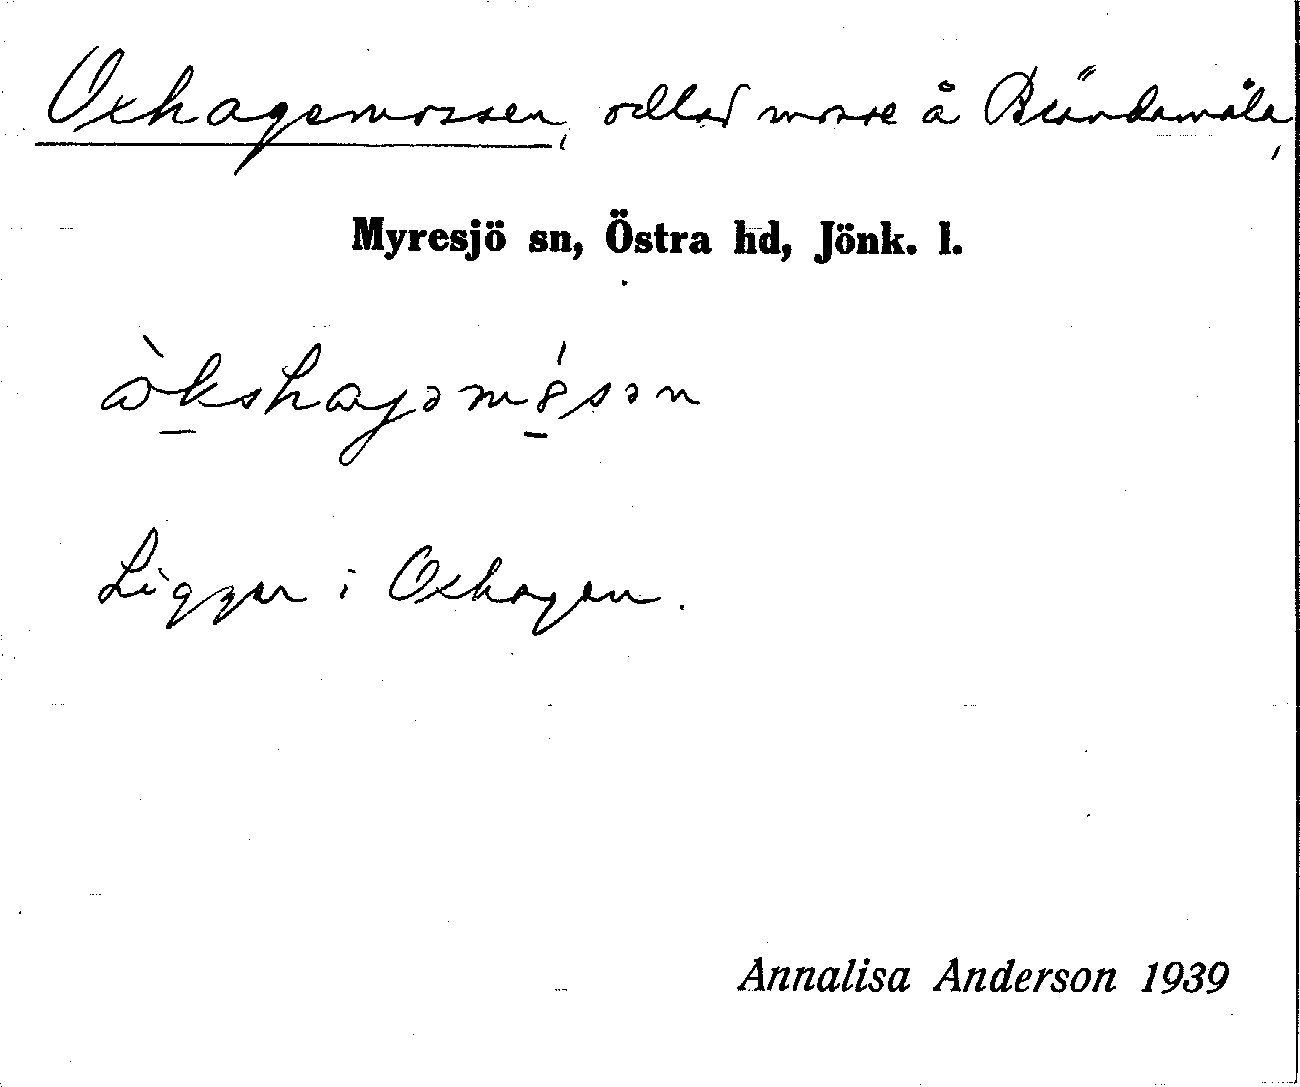 Oxhagemossen, odlad mosse å Brändamåla,
Myresjö sn, Östra hd, Jönk. l.
Ligger i Oxhagen.
Annalisa Anderson 1939